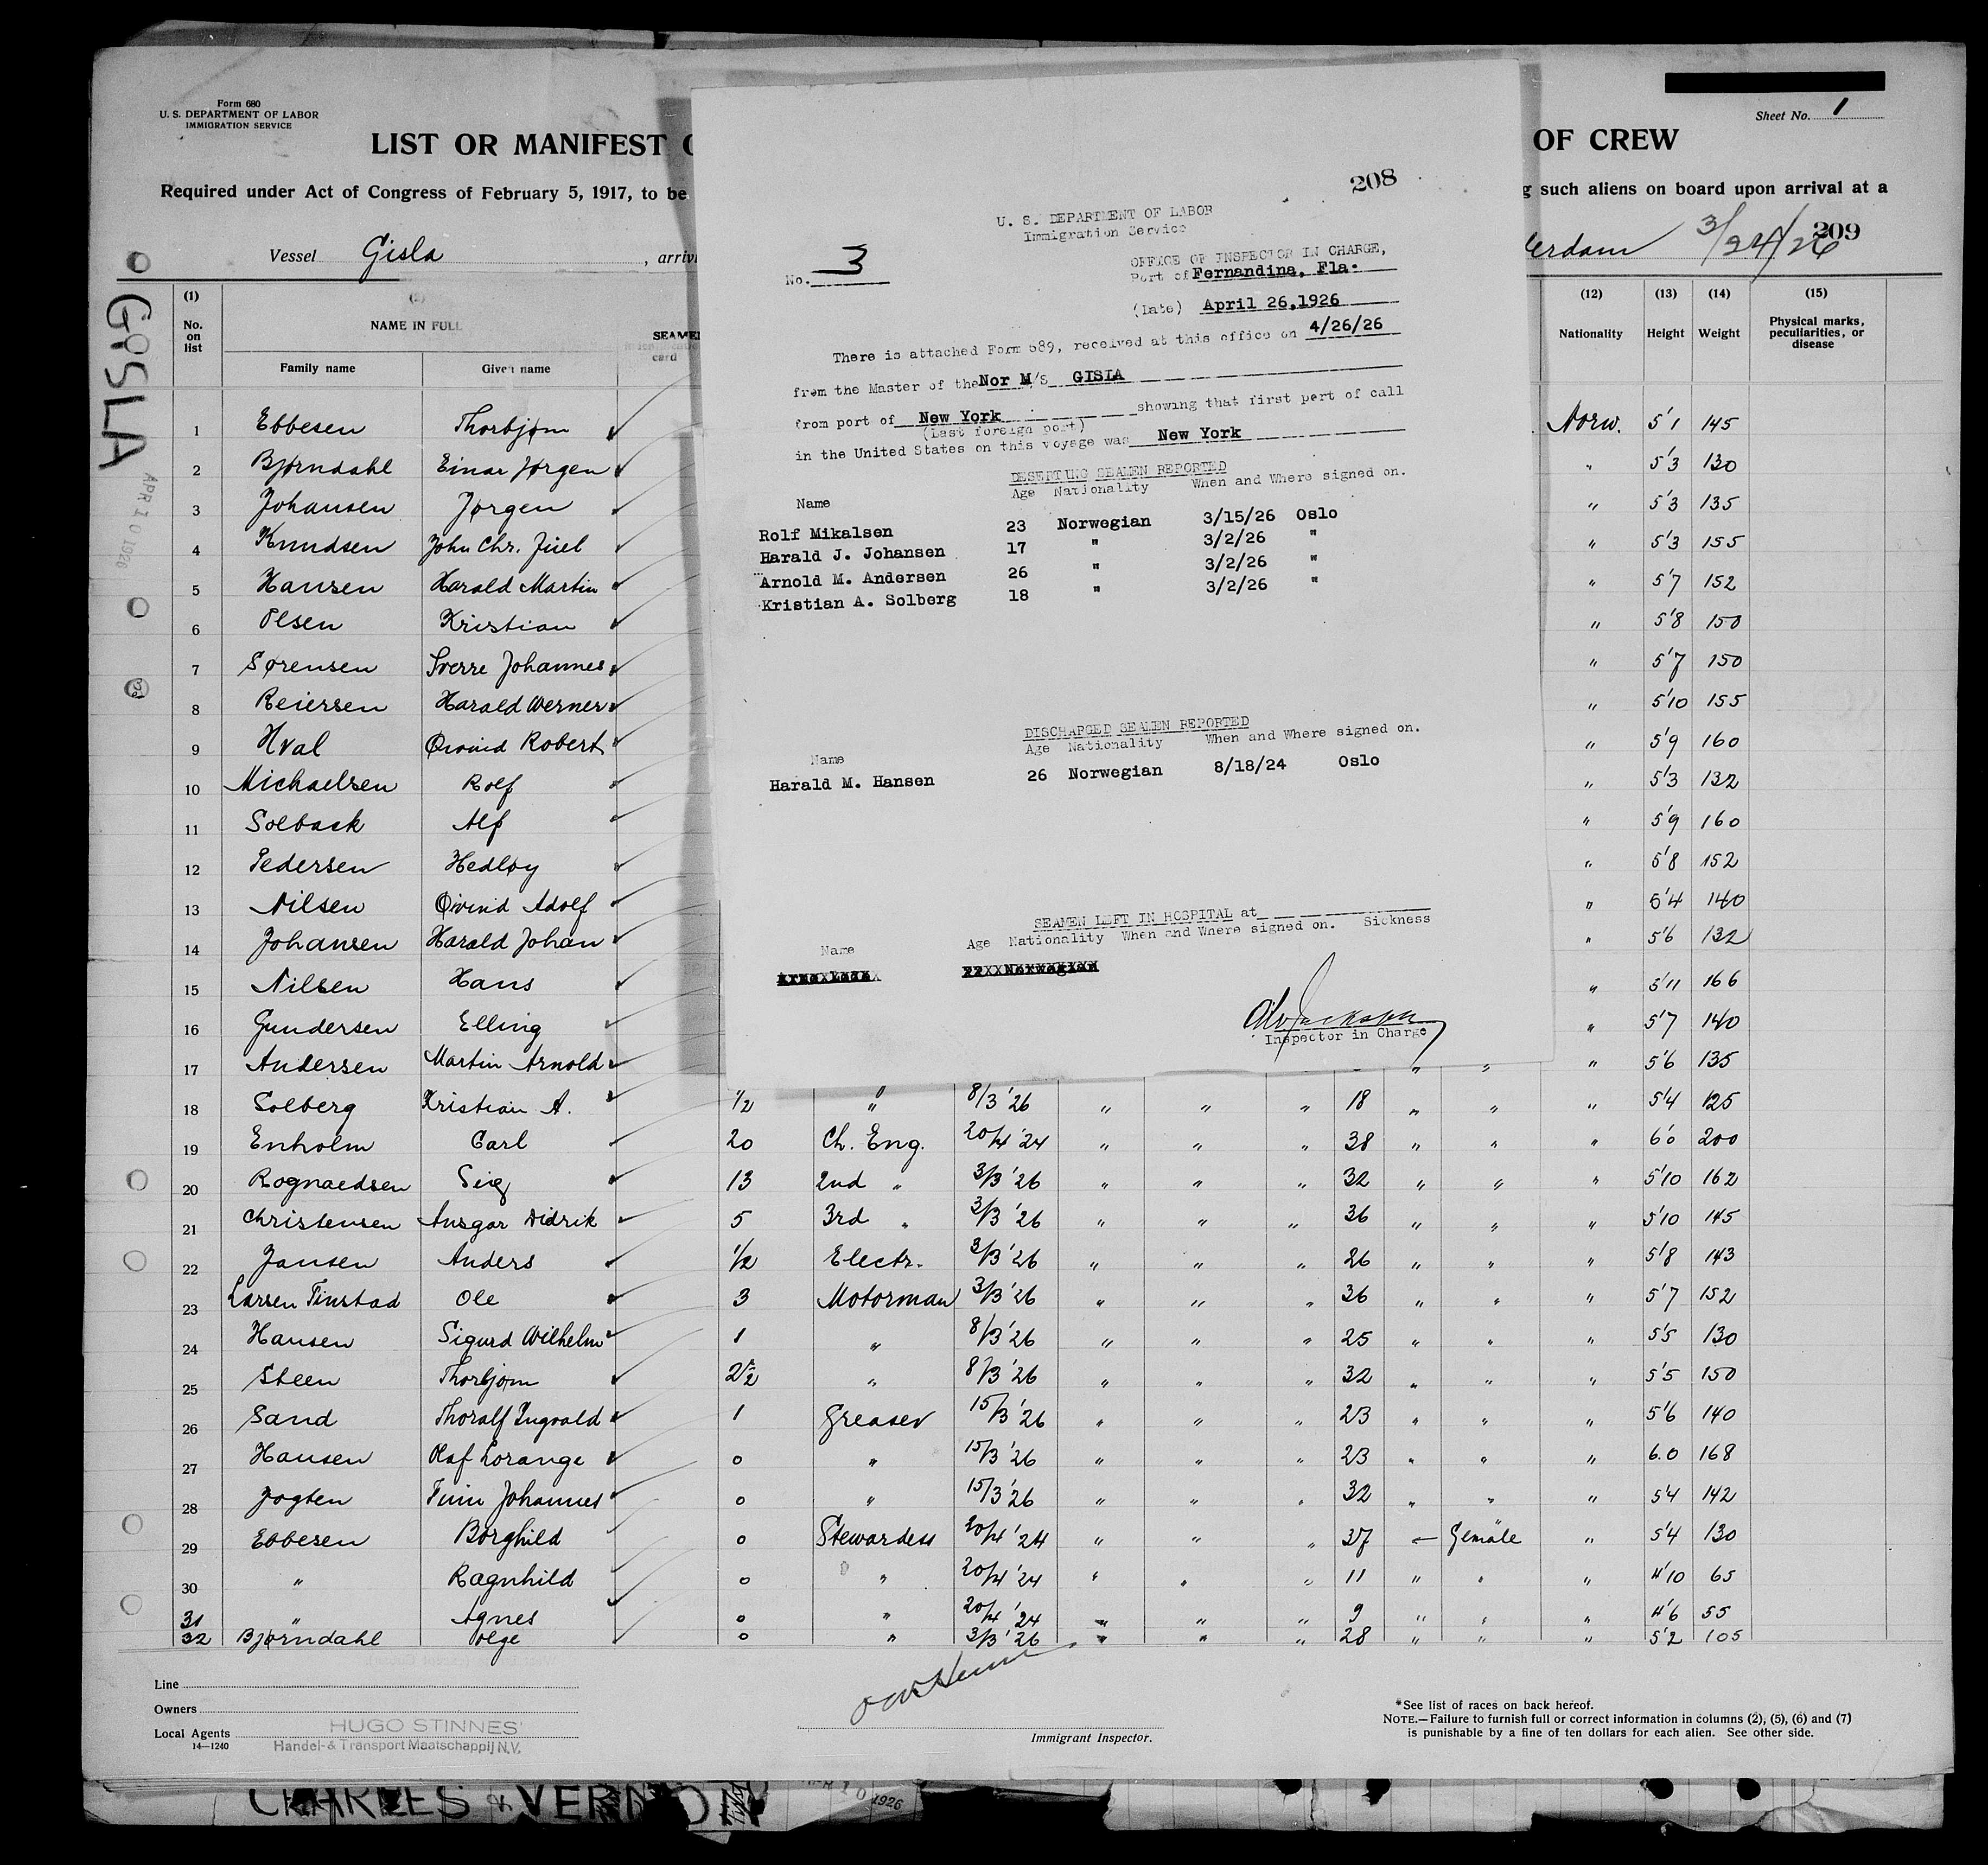 Form 680
U. S. DEPARTMENT OF LABOR
IMMIGRATION SERVICE
Sheet No. 1
LIST OR MANIFEST O
OF CREW
Required under Act of Congress of February 5, 1917, to be
g such aliens on board upon arrival at a
Vessel Gisla , arriv
erdam 3/24/26
209
GISLA
APR 10 1926
(1) No. on list
(2) NAME IN FULL
Family name Given name
SEAME
card
(12) Nationality
(13) Height
(14) Weight
(15) Physical marks, peculiarities, or disease
208
U. S. DEPARTMENT OF LABOR
Immigration Service
No. 3
OFFICE OF INSPECTOR IN CHARGE,
Port of Fernandina, Fla.
(Date) April 26,1926
There is attached Form 689, received at this office on 4/26/26
from the Master of the Nor M/S GISLA
from port of New York showing that first port of call
(Last foreign port)
in the United States on this voyage was New York
DESERTING SEAMEN REPORTED
Name Age Nationality When and Where signed on.
Rolf Mikalsen 23 Norwegian 3/15/26 Oslo
Harald J. Johansen 17 " 3/2/26 "
Arnold M. Andersen 26 " 3/2/26 "
Kristian A. Solberg 18 " 3/2/26 "
DISCHARGED SEAMEN REPORTED
Name Age Nationality When and Where signed on.
Harald M. Hansen 26 Norwegian 8/18/24 Oslo
SEAMEN LEFT IN HOSPITAL at
Name Age Nationality When and Where signed on. Sickness
Inspector in Charge
1 Ebbesen Thorbjørn Norw. 5'1 145
2 Bjørndahl Einar Jørgen " 5'3 130
3 Johansen Jørgen " 5'3 135
4 Knudsen John Chr. Juel " 5'3 155
5 Hansen Harald Martin " 5'7 152
6 Olsen Kristian " 5'8 150
7 Sørensen Sverre Johannes " 5'7 150
8 Reiersen Harald Werner " 5'10 155
9 Hval Øivind Robert " 5'9 160
10 Michaelsen Rolf " 5'3 132
11 Solback Alf " 5'9 160
12 Pedersen Hedløy " 5'8 152
13 Nilsen Øivind Adolf " 5'4 140
14 Johansen Harald Johan " 5'6 132
15 Nilsen Hans " 5'11 166
16 Gundersen Elling " 5'7 140
17 Andersen Martin Arnold " " " 5'6 135
18 Solberg Kristian A. 1/2 " 8/3 '26 " " " 18 " " " 5'4 125
19 Enholm Carl 20 Ch. Eng. 20/4 '24 " " " 38 " " " 6'0 200
20 Rognaldsen Sig 13 2nd " 3/3 '26 " " " 32 " " " 5'10 162
21 Christensen Ansgar Didrik 5 3rd " 3/3 '26 " " " 36 " " " 5'10 145
22 Jansen Anders 1/2 Electr. 3/3 '26 " " " 26 " " " 5'8 143
23 Larsen Tinstad Ole 3 Motorman 3/3 '26 " " " 36 " " " 5'7 152
24 Hansen Sigurd Wilhelm 1 " 8/3 '26 " " " 25 " " " 5'5 130
25 Steen Thorbjørn 2 1/2 " 8/3 '26 " " " 32 " " " 5'5 150
26 Sand Thoralf Ingvald 1 Greaser 15/3 '26 " " " 23 " " " 5'6 140
27 Hansen Olaf Lorange 0 " 15/3 '26 " " " 23 " " " 6.0 168
28 Jogten Finn Johannes 0 " 15/3 '26 " " " 32 " " " 5'4 142
29 Ebbesen Borghild 0 Stewardess 20/4 '24 " " " 37 " Female " 5'4 130
30 " Ragnhild 0 " 20/4 '24 " " " 11 " " " 4'10 65
31 " Agnes 0 " 20/4 '24 " " " 9 " " " 4'6 55
32 Bjørndahl Olge 0 " 3/3 '26 " " " 28 " " " 5'2 105
Line
Owners
Local Agents HUGO STINNES'
Handel- & Transport Maatschappij N.V.
14—1240
Immigrant Inspector.
*See list of races on back hereof.
NOTE.—Failure to furnish full or correct information in columns (2), (5), (6) and (7)
is punishable by a fine of ten dollars for each alien. See other side.
CHARLES & VERNON
APR 10 1926